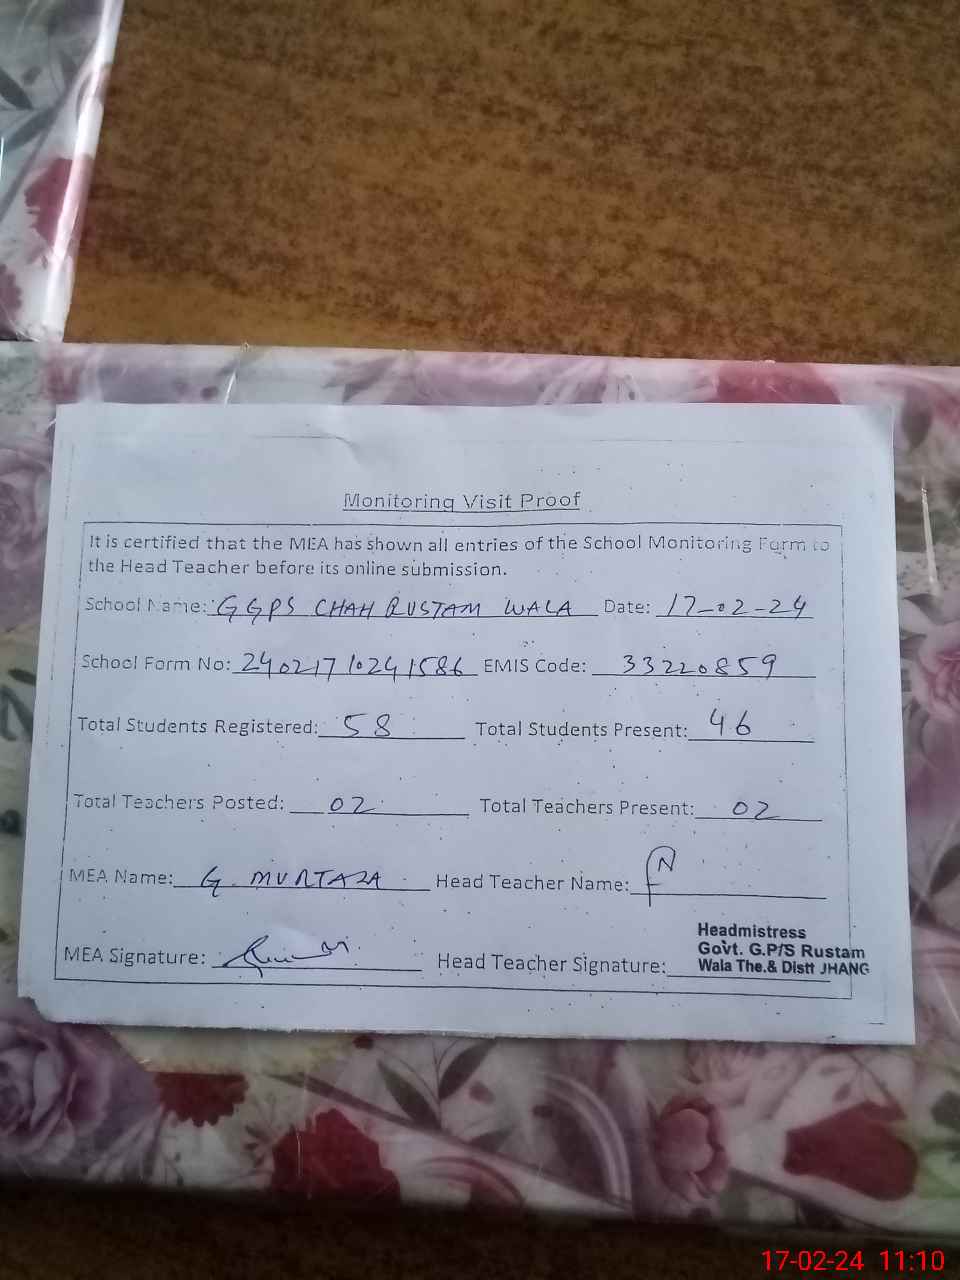 Monitoring Visit Proof
It is certified that the MEA has shown all entries of the School Monitoring Form to
the Head Teacher before its online submission.
School Name: GGPS CHAH RUSTAM WALA Date: 17-02-24
School Form No: 24021710241586 EMIS Code: 33220859
Total Students Registered: 58 Total Students Present: 46
Total Teachers Posted: 02 Total Teachers Present: 02
MEA Name: G. MURTAZA Head Teacher Name:
Headmistress
Govt. G.P/S Rustam
Wala The.& Distt JHANG
MEA Signature: Head Teacher Signature:
17-02-24 11:10